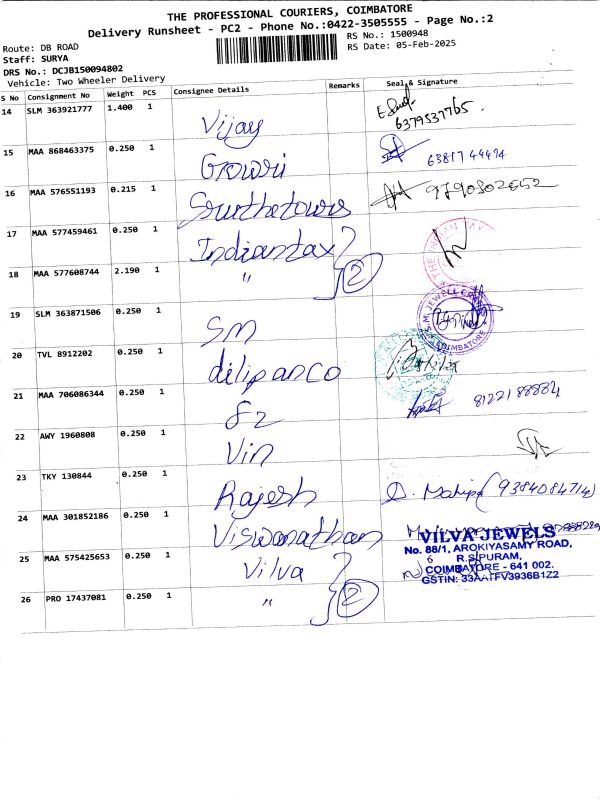 THE PROFESSIONAL COURIERS, COIMBATORE
Delivery Runsheet - PC2 - Phone No.:0422-3505555 - Page No.:2
Route: DB ROAD
Staff: SURYA
DRS No.: DCJB150094802
Vehicle: Two Wheeler Delivery
RS No.: 1500948
RS Date: 05-Feb-2025
S No Consignment No Weight PCS Consignee Details Remarks Seal & Signature
14 SLM 363921777 1.400 1 Vijay 6379537765
15 MAA 868463375 0.250 1 Gowri
16 MAA 576551193 0.215 1 9790802652
17 MAA 577459461 0.250 1 Indiantax
18 MAA 577608744 2.190 1 " 2
19 SLM 363871506 0.250 1 SM
S.M. JEWELL COIMBATORE
20 TVL 8912202 0.250 1 dilipanco
21 MAA 706086344 0.250 1 82
22 AWY 1960808 0.250 1 Vin
23 TKY 130844 0.250 1 Rajesh (9384084714)
24 MAA 301852186 0.250 1 Viswanathan
25 MAA 575425653 0.250 1 Vilva
26 PRO 17437081 0.250 1 " 2
VILVA JEWELS
No. 88/1, AROKIYASAMY ROAD,
R.S. PURAM,
COIMBATORE - 641 002.
GSTIN: 33AATFV3936B1Z2